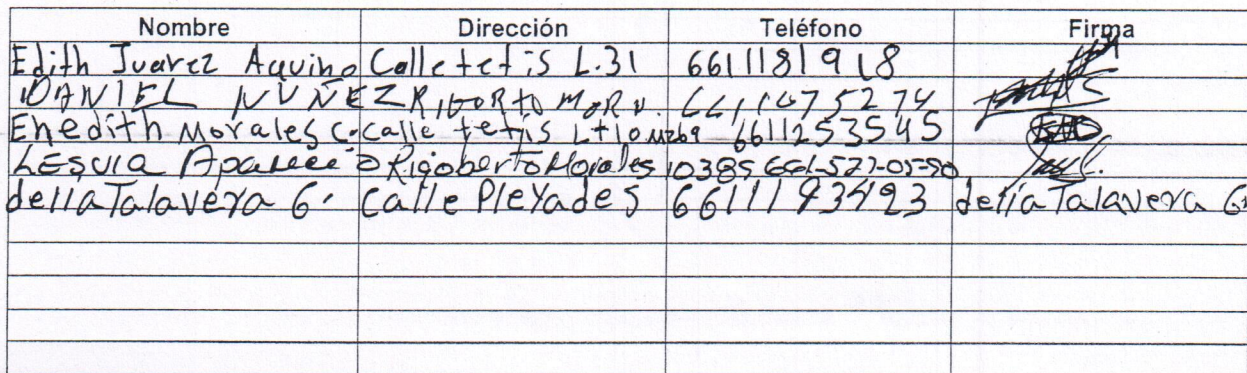 Nombre Dirección Teléfono Firma
Edith Juarez Aquino Calle tetis L.31 6611181918
DANIEL NUÑEZ RIGORTO MORA 6611675274
Enedith Morales C. calle tetis Lt10 Mz69 6611253545
LESVIA Rigoberto Morales 10385 661-527-05-90
delia Talavera G. Calle Pleyades 6611193493 delia Talavera G.